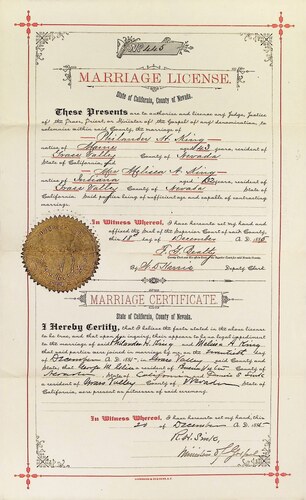 No 445
MARRIAGE LICENSE.
State of California, County of Nevada.
These Presents are to authorize and license any Judge, Justice
of the Peace, Priest or Minister of the Gospel of any denomination, to
solemnize within said County, the marriage of
Philander H. King
native of Maine aged 43 years, resident of
Grass Valley County of Nevada
State of California, and
Mrs Melissa A. King
native of Indiana aged years, resident of
Grass Valley County of Nevada State of
California. Said parties being of sufficient age and capable of contracting
marriage.
In Witness Whereof, I have hereunto set my hand and
affixed the Seal of the Superior Court of said County,
this 18 day of December A. D. 188
Deputy Clerk
MARRIAGE CERTIFICATE.
State of California, County of Nevada.
I Hereby Certify, that I believe the facts stated in the above license
to be true, and that upon due inquiry, there appears to be no legal impediment
to the marriage of said Philander H. King and Melissa A. King
that said parties were joined in marriage by me, on the twentieth day
of December A. D. 188 in Grass Valley said County and
State; that George M. resident of County of
State of California and
a resident of Grass Valley County of Nevada State of
California, were present as witnesses of said ceremony.
In Witness Whereof, I have hereunto set my hand, this
20 day of December A. D. 188
R. H.
Minister of Gospel